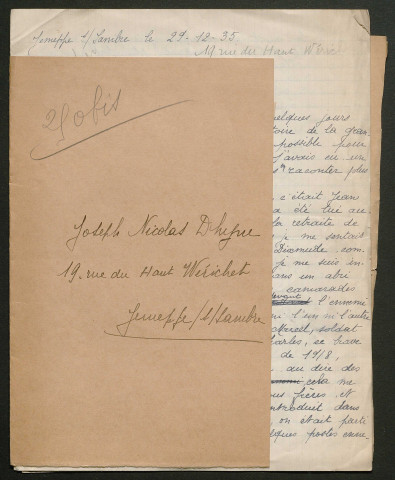 Jemeppe s/Sambre le 29-12-35
19 rue du Haut Wéric
250bis
Joseph Nicolas Dheyne
19. rue du Haut Wérichet
Jemeppe/s/Sambre
elques jours
toire de la gran
possible pour
j'avais eu un
raconter plus
c'était Jean
a été tué au
la retraite de
je me sentais
Dixmude com
je me suis en
ans un abri
camarades
devant l'ennemi
l'un ni l'autre
soldat
arles, se trouve
de 1918,
au dire des
cela me
ous frères et
ntroduit dans
on était parti
lques postes enne